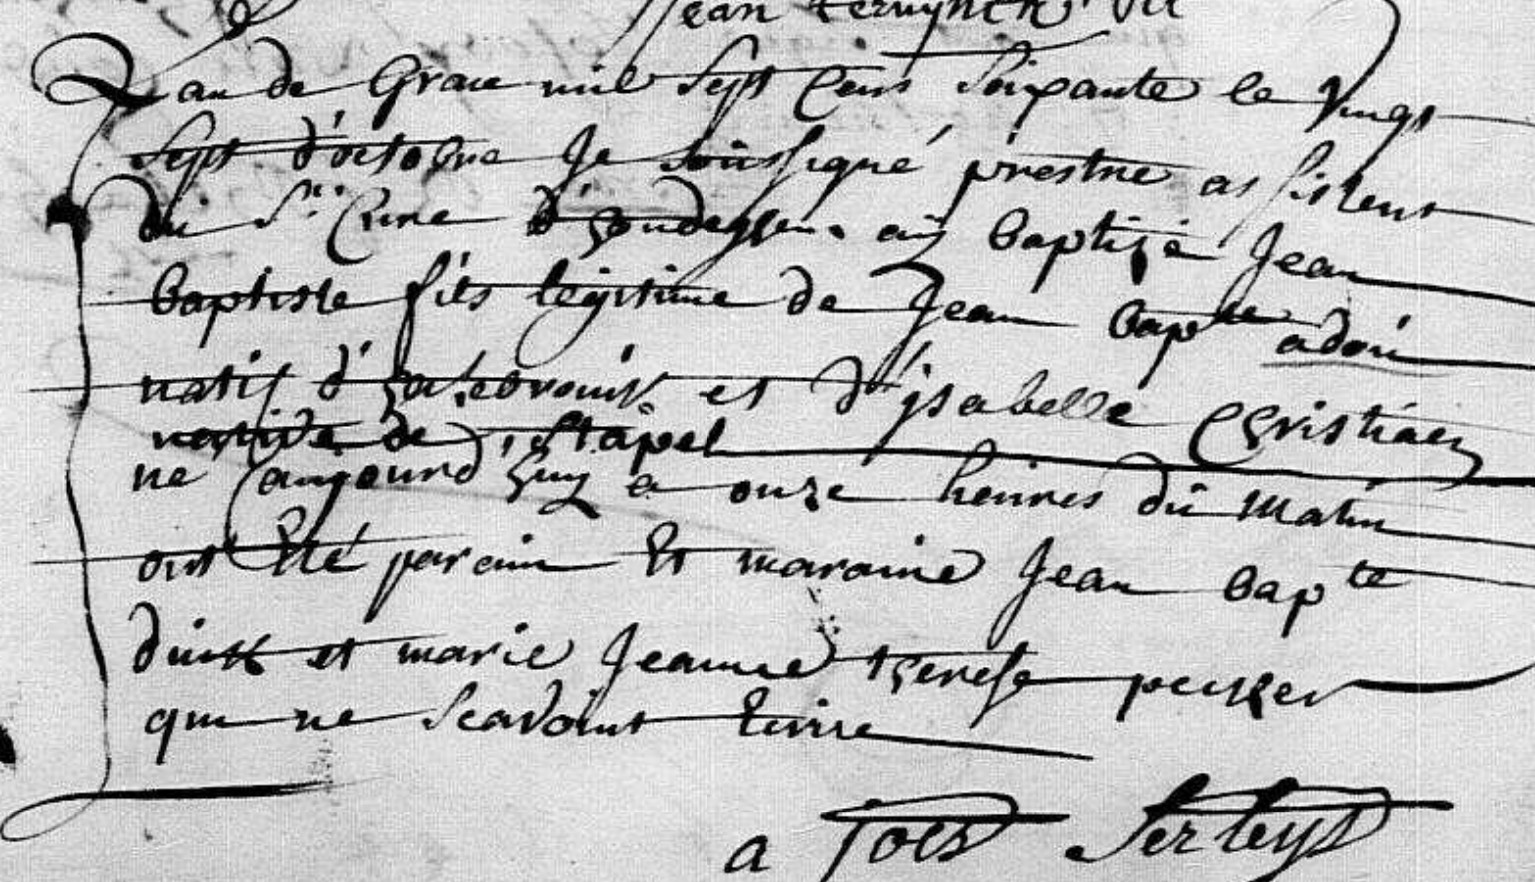 Jean
L'an de Grace mil sept Cens soixante le vingt
sept d'octobre Je soussigné prestre assistent
du Sr. Cure d'houdeghem. aÿ baptizé Jean
baptiste fils legitime de Jean bapte adou
natif d'hazebrouck et d'isabelle Christiaen
native de Stapel
ne aujourd'huy a onze heures du matin
ont Eté parain Et maraine Jean bapte
et marie Jeanne therese
qui ne scavoint Ecrire
a Joës